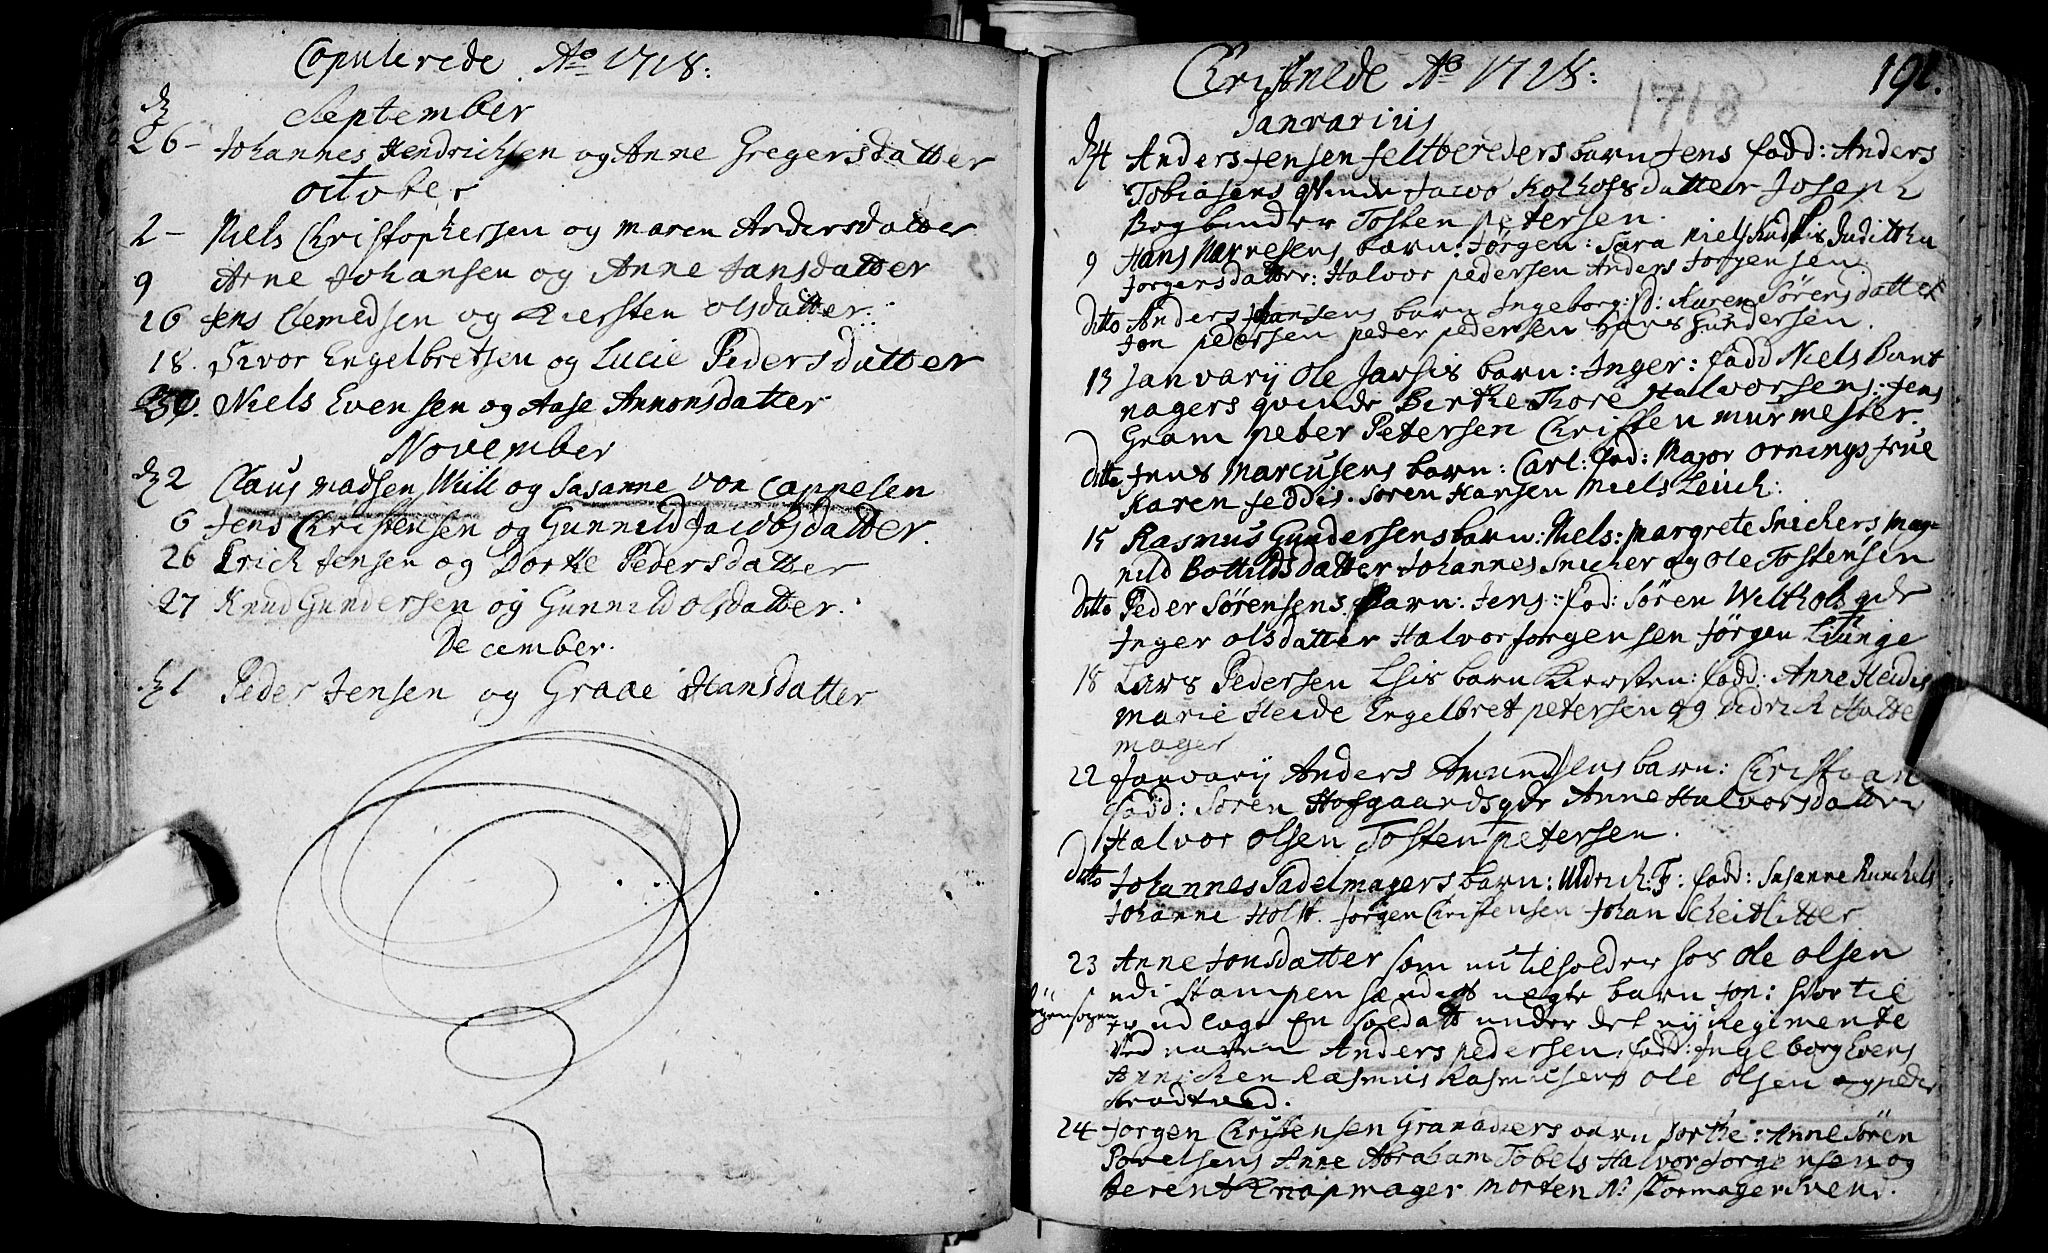 Copulerede Ao 1718:
d
September
26- Johannes Hendrichsen og Anne Gregersdatter
october
2- Niels Christophersen og maren Andersdatter
9 Arne Johansen og Anne Jansdatter
16 Jens Clemedsen og Kiersten olsdatter:
18. Sivor Engelbretsen og Lucie Pedersdatter
Niels Evensen og Aase Annonsdatter
November
d 2 Claus madsen Wiil og Susanne von Cappelen
6 Jens Christensen og Gunnild Jacobsdatter.
26 Erich Jensen og Dorthe Pedersdatter
27 Knud Gundersen og Gunnild olsdatter.
December.
d 1 Peder Jensen og Graae Hansdatter
Christnede Ao 1718: 191.
1718
Januarius
d 4 Anders Jensen feltbereders barn Jens fadd: Anders
Tobiasens qvinde Jacob Kolhofs datter Joseph
Bogbinder Tosten petersen.
9 Hans barn: Jørgen: Sara Niels Juditha
Jorgensdatter: Halvor pedersen Anders Jorgensen
ditto Anders Hansens barn Ingeborg: fd: Karen Sørensdatter
Jon pedersen peder pedersen Hans Gundersen.
13 Janvarij Ole barn: Inger: fadd Niels Bunt
magers qvinde Birthe Thore Halvorsens: Jens
Gram peter Petersen Christen murmester.
ditto Jens Marcusens barn: Carl: fad: Major ornings frue
Karen feddis. Søren Hansen Niels Leuch:
15 Rasmus Gundersens barn: Niels: margrete Snickers mag-
nild Bottildsdatter Johannes Snicker og Ole Tostensen
ditto Peder Sørensens Barn: Jens: fad: Søren qde
Inger olsdatter Halvor Jorgensen Jørgen Lunge
18 Lars Pedersen barn Kiersten: fadd: Anne Heidis
Marie Heide Engelbret petersen og Didrich Hatte
mager
22 Janvarij Anders Amundsens barn:
fadd: Søren Hofgaards qde Anne Halvorsdatter
Halvor olsen Tosten petersen.
ditto Johannes Sadelmagers barn: Uldrich: F: fadd: Susanne Runchels
Johanne Holst. Jorgen Christensen Johan Scheitlitter
23 Anne Jonsdatter som nu tilholder hos ole olsen
udi Stampen hendes uegte barn Jon: hvor til
er udlagt En soldatt under det nye Regimente
ved navn Anders pedersen. fadd: Ingeborg Evens
Annichen Rasmus Rasmusens ole olsen og peder

24 Jorgen Christensen Granadeers barn Dorthe: Anne Søren
Povelsens Anne Abraham Tobels Halvor Jorgensen og
Berent Knapmager Morten N: skomager Svend.